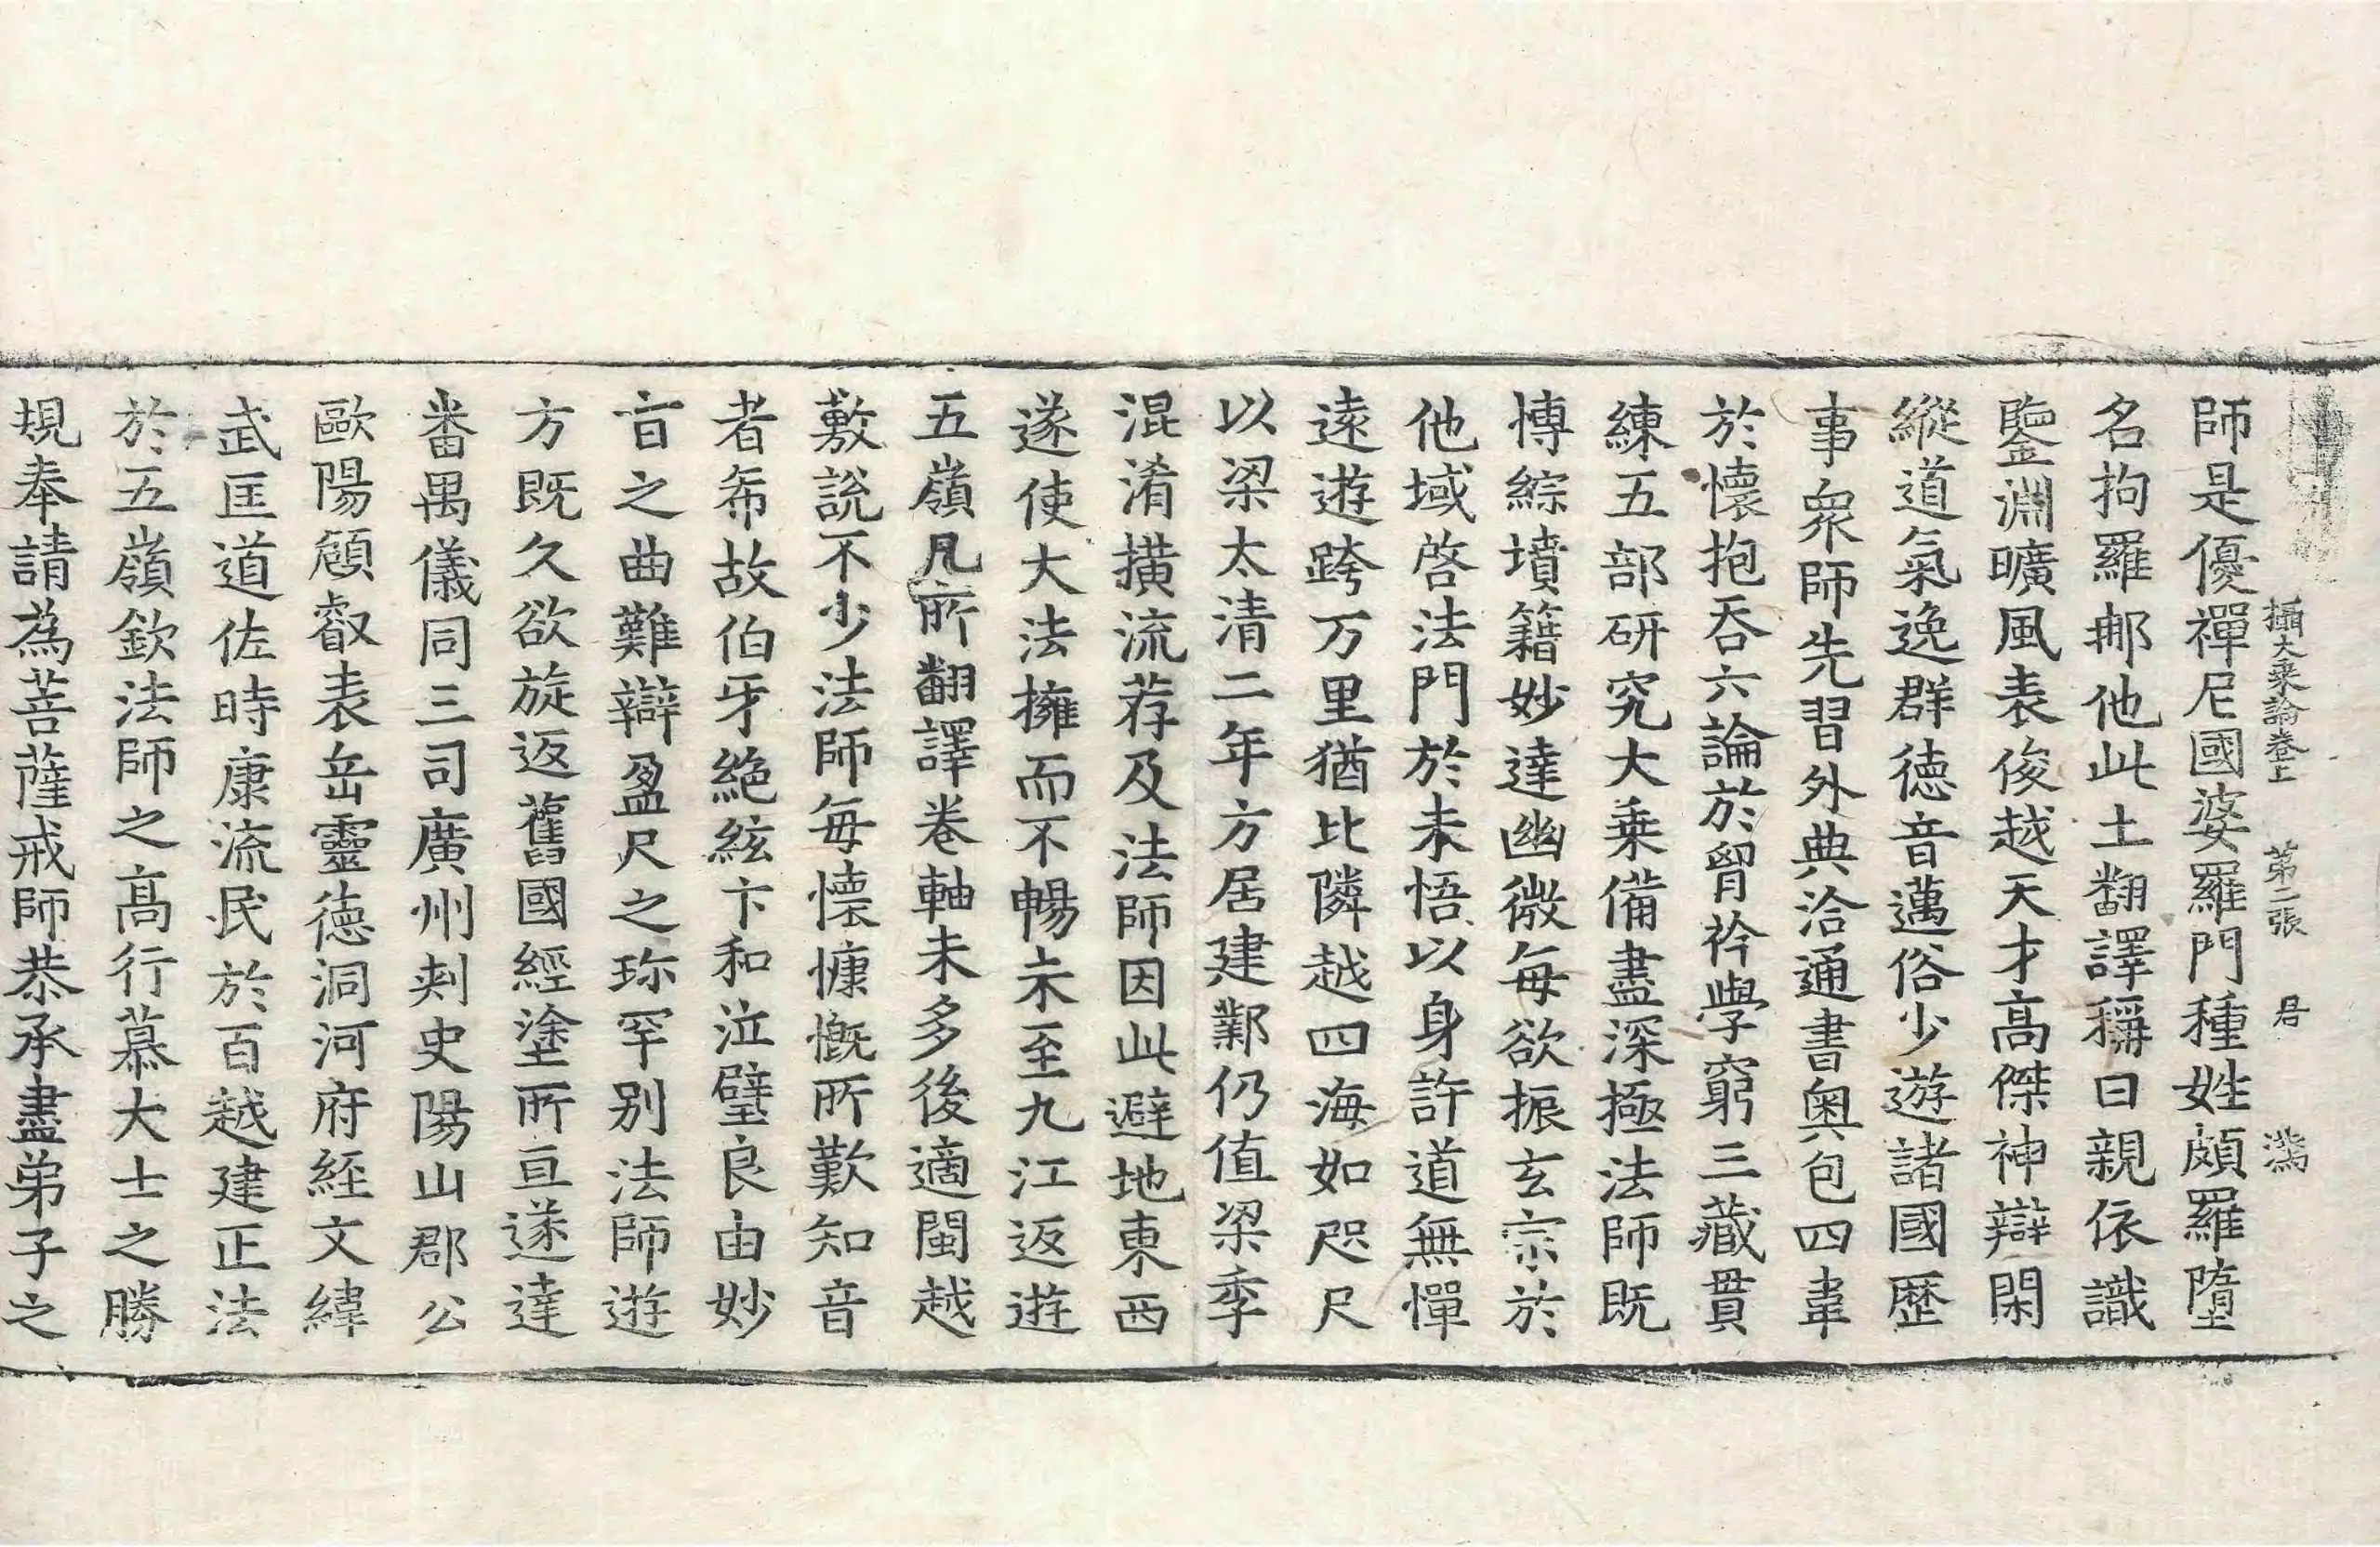 攝大乗論卷上 第二張 㞐
師是優禪尼國婆羅門種姓頗羅墮
名拘羅那他此土翻譯稱曰親依識
鑒淵曠風表俊越天才高傑神辯閑
縱道氣逸群德音邁俗少遊諸國歷
事衆師先習外典洽通書奧包四韋
於懷抱吞六論於胷衿學窮三藏貫
練五部研究大乗備盡深極法師既
博綜墳籍妙達幽微每欲振玄宗於
他域啓法門於未悟以身許道無憚
遠遊跨万里猶比隣越四海如咫尺
以梁太清二年方居建鄴仍值梁季
混淆橫流荐及法師因此避地東西
遂使大法擁而不暢末至九江返遊
五嶺凡所翻譯卷軸未多後適閩越
敷說不少法師每懷慷慨所歎知音
者希故伯牙絶絃卞和泣璧良由妙
旨之曲難辯盈尺之珎罕別法師遊
方既久欲旋返舊國經塗所亘遂達
番禺儀同三司廣州刾史陽山郡公
歐陽頠叡表岳靈德洞河府経文緯
武匡道佐時康流民於百越建正法
於五嶺欽法師之高行慕大士之勝
規奉請為菩薩戒師恭承盡弟子之